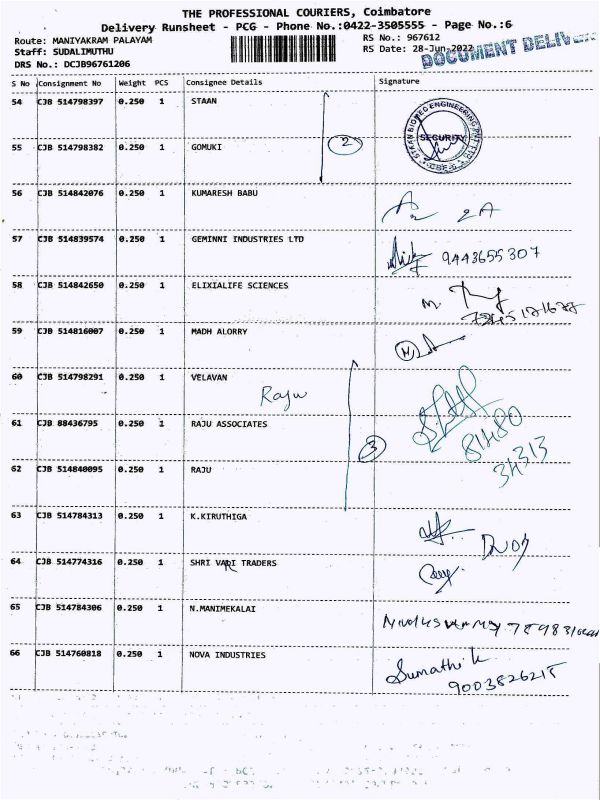 THE PROFESSIONAL COURIERS, Coimbatore
Delivery Runsheet - PCG - Phone No.:0422-3505555 - Page No.:6
Route: MANIYAKRAM PALAYAM
RS No.: 967612
Staff: SUDALIMUTHU
RS Date: 28-Jun-2022
DOCUMENT
DRS No.: DCJB96761206
S No Consignment No Weight PCS Consignee Details Signature
54 CJB 514798397 0.250 1 STAAN
SECURITY
55 CJB 514798382 0.250 1 GOMUKI
2
56 CJB 514842076 0.250 1 KUMARESH BABU
57 CJB 514839574 0.250 1 GEMINNI INDUSTRIES LTD 9443655307
58 CJB 514842650 0.250 1 ELIXIALIFE SCIENCES
59 CJB 514816007 0.250 1 MADH ALORRY
60 CJB 514798291 0.250 1 VELAVAN
Raju
61 CJB 88436795 0.250 1 RAJU ASSOCIATES
81480
34313
3
62 CJB 514840095 0.250 1 RAJU
63 CJB 514784313 0.250 1 K.KIRUTHIGA
64 CJB 514774316 0.250 1 SHRI VARI TRADERS
65 CJB 514784306 0.250 1 N.MANIMEKALAI
66 CJB 514760818 0.250 1 NOVA INDUSTRIES Sumathi k
9003826215